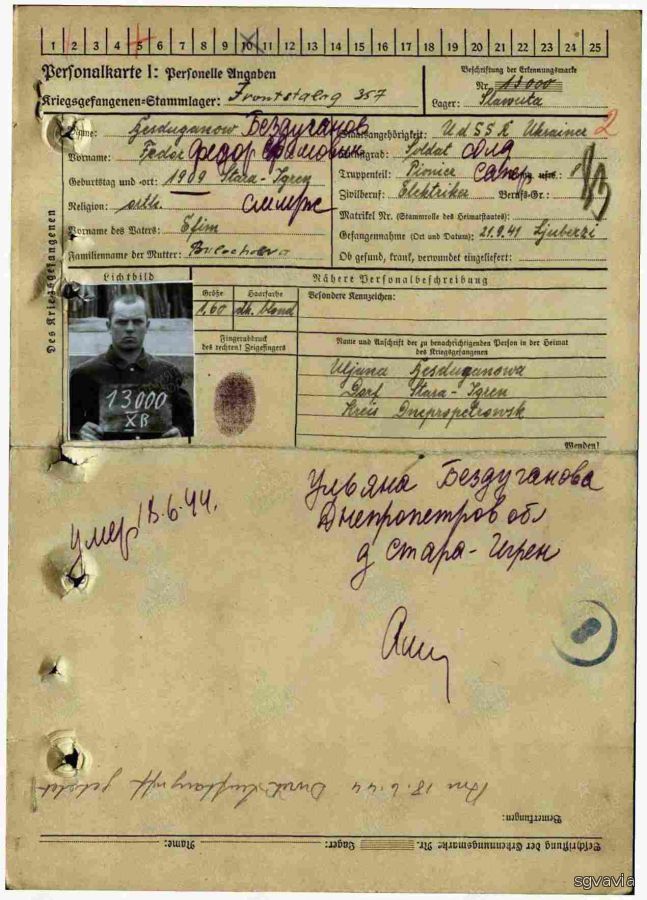 1 2 3 4 5 6 7 8 9 10 11 12 13 14 15 16 17 18 19 20 21 22 23 24 25
Personalkarte I: Personelle Angaben
Beschriftung der Erkennungsmarke
Nr. 13000
Kriegsgefangenen-Stammlager: Frontstalag 357
Lager: Slawuta
Des Kriegsgefangenen
Name: Besduganow Бездуганов
Staatsangehörigkeit: UdSSR Ukrainer 2
Vorname: Fedor Федор
Dienstgrad: Soldat солд
Truppenteil: Pionier сапер
Geburtstag und -ort: 1909 Stara-Igren
Zivilberuf: Elektriker Berufs-Gr.:
Religion: orth.
Matrikel Nr. (Stammrolle des Heimatstaates):
Vorname des Vaters: Efim
Gefangennahme (Ort und Datum): 21.9.41 Ljuberzi
Familienname der Mutter:
Ob gesund, krank, verwundet eingeliefert:
Lichtbild
Nähere Personalbeschreibung
Größe
Haarfarbe
Besondere Kennzeichen:
1,60
dk. blond
Fingerabdruck
des rechten! Zeigefingers
Name und Anschrift der zu benachrichtigenden Person in der Heimat
des Kriegsgefangenen
Uljana Besduganowa
Dorf Stara-Igren
Kreis Dnepropetrowsk
13000
XB
Wenden!
Ульяна Бездуганова
Днепропетров обл
д Стара-Игрен
умер 18.6.44.
18.6.44 Durch Luftangriff getötet
Bemerkungen:
Beschriftung der Erkennungsmarke Nr. Lager: Name:
sgvavia